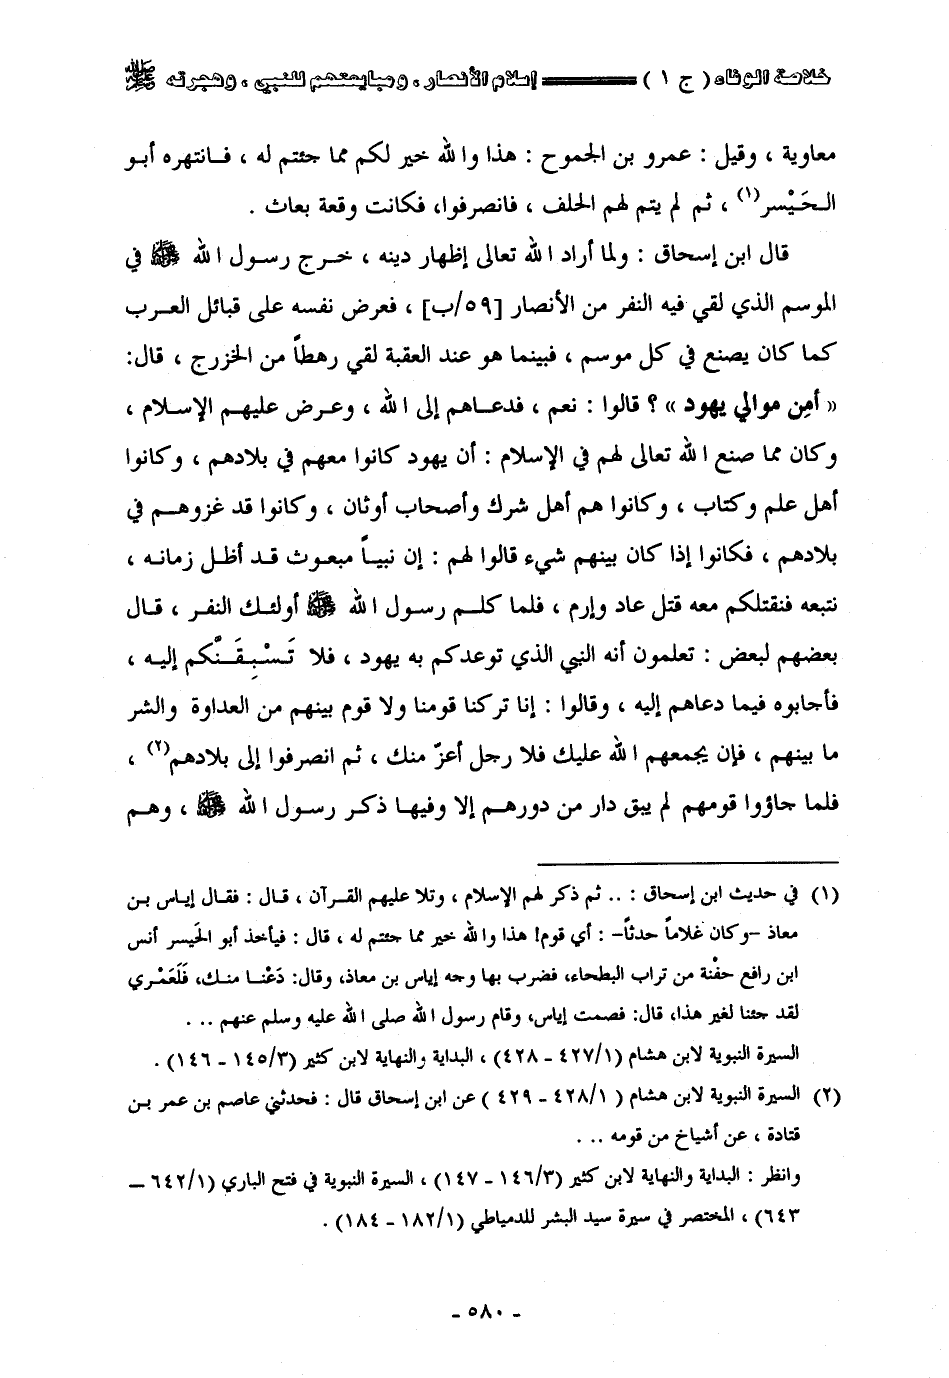 خلاصة الوفاء ( ج ١ ) إسلام الأنصار ، ومبايعتهم للنبي ، وهجرته ﷺ
معاوية ، وقيل : عمرو بن الجموح : هذا والله خير لكم مما جئتم له ، فانتهره أبو
الحَيْسر(١) ، ثم لم يتم لهم الحلف ، فانصرفوا، فكانت وقعة بعاث .
قال ابن إسحاق : ولما أراد الله تعالى إظهار دينه ، خرج رسول الله ﷺ في
الموسم الذي لقي فيه النفر من الأنصار [٥٩/ب] ، فعرض نفسه على قبائل العرب
كما كان يصنع في كل موسم ، فبينما هو عند العقبة لقي رهطاً من الخزرج ، قال:
« أمِن موالي يهود » ؟ قالوا : نعم ، فدعاهم إلى الله ، وعرض عليهم الإسلام ،
وكان مما صنع الله تعالى لهم في الإسلام : أن يهود كانوا معهم في بلادهم ، وكانوا
أهل علم وكتاب ، وكانوا هم أهل شرك وأصحاب أوثان ، وكانوا قد غزوهم في
بلادهم ، فكانوا إذا كان بينهم شيء قالوا لهم : إن نبياً مبعوث قد أظل زمانه ،
نتبعه فنقتلكم معه قتل عاد وإرم ، فلما كلم رسول الله ﷺ أولئك النفر ، قال
بعضهم لبعض : تعلمون أنه النبي الذي توعدكم به يهود ، فلا تَسْبِقَنَّكم إليه ،
فأجابوه فيما دعاهم إليه ، وقالوا : إنا تركنا قومنا ولا قوم بينهم من العداوة والشر
ما بينهم ، فإن يجمعهم الله عليك فلا رجل أعزّ منك ، ثم انصرفوا إلى بلادهم(٢) ،
فلما جاؤوا قومهم لم يبق دار من دورهم إلا وفيها ذكر رسول الله ﷺ ، وهم
(١) في حديث ابن إسحاق : .. ثم ذكر لهم الإسلام ، وتلا عليهم القرآن ، قال : فقال إياس بن
معاذ -وكان غلاماً حدثاً- : أي قوم! هذا والله خير مما جئتم له ، قال : فيأخذ أبو الحَيسر أنس
ابن رافع حفْنة من تراب البطحاء، فضرب بها وجه إياس بن معاذ، وقال: دَعْنا منك، فَلَعَمْري
لقد جئنا لغير هذا، قال: فصمت إياس، وقام رسول الله صلى الله عليه وسلم عنهم ...
السيرة النبوية لابن هشام (٤٢٧/١ - ٤٢٨) ، البداية والنهاية لابن كثير (١٤٥/٣ - ١٤٦) .
(٢) السيرة النبوية لابن هشام ( ٤٢٨/١ - ٤٢٩ ) عن ابن إسحاق قال : فحدثني عاصم بن عمر بن
قتادة ، عن أشياخ من قومه ...
وانظر : البداية والنهاية لابن كثير (١٤٦/٣ - ١٤٧) ، السيرة النبوية في فتح الباري (٦٤٢/١ -
٦٤٣) ، المختصر في سيرة سيد البشر للدمياطي (١٨٢/١ - ١٨٤) .
- ٥٨٠ -